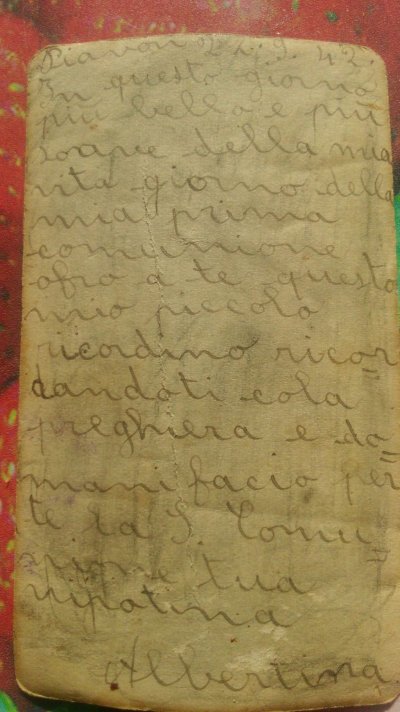 Piavon 2
In questo giorno
più bello e più
soave della mia
vita giorno della
mia prima
comunione
ofro a te questo
mio piccolo
ricordino ricor=
dandoti cola
preghiera e do=
mani facio per
te la S. Comu=
nione tua
nipotina
Albertina